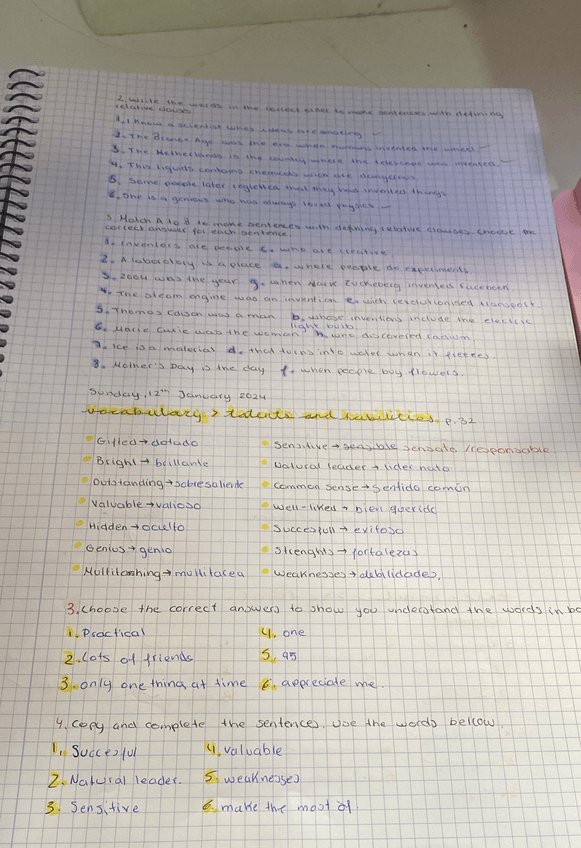 2. Write the words in the correct order to make sentences with defining
relative clauses.
1. I know a scientist whos ideas are amazing
2. The Bronze Age was the era when humans invented the wheel
3. The Netherlands is the country where the telescope was invented.
4. This liquids contains chemicals wich are dangerous
5. Some people later regretted that they had invented things
6. She is a genious who has always loved physics.
3. Match A to B to make sentences with defining relative clauses. Choose the
correct answer for each sentence
1. Inventors are people c. who are creative
2. A laboratory is a place a. where people do experiments
3. 2004 was the year g. when Mark Zuckeberg invented Facebook
4. The steam engine was an invention e. wich revolutionised transport.
5. Thomas Edison was a man b. whose inventions include the electric
light bulb.
6. Marie Curie was the woman h. who discovered radium.
7. Ice is a material d. that turns into water when it freezes
8. Mother's Day is the day f. when people buy flowers.
Sunday, 12th January 2024
Vocabulary > talents and habilities. p.32
Gifted → dotado
Bright → brillante
Outstanding → sobresaliente
Valuable → valioso
Hidden → oculto
Genius → genio
Multitashing → multitarea
Sensitive → sensible sensato /responsable
Natural leader → lider nato
Common sense → sentido común
Well-liked → bien querido
Succesfull → exitoso
Strenghts → fortalezas
Weaknesses → debilidades.
3. Choose the correct answers to show you understand the words in bo
1. Practical
2. Lots of friends
3. only one thing at time
4. one
5. 95
6. appreciate me.
4. Copy and complete the sentences. Use the words bellow
1. Succesful
2. Natural leader.
3. Sensitive
4. valuable
5. weaknesses
6. make the most of